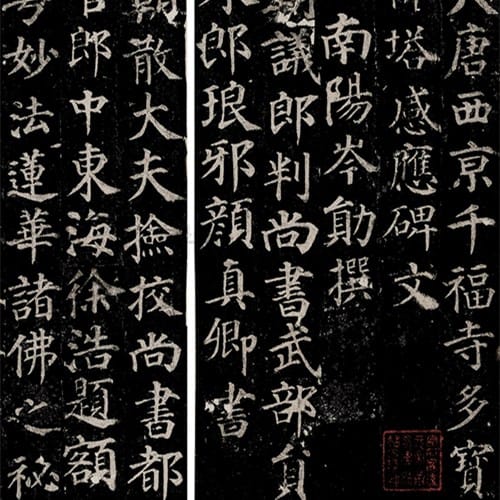 大唐西京千福寺多寶
塔感應碑文
南陽岑勛撰
議郎判尚書武部員
郎琅邪顏真卿書
朝散大夫撿挍尚書都
官郎中東海徐浩題額
妙法蓮華諸佛之祕